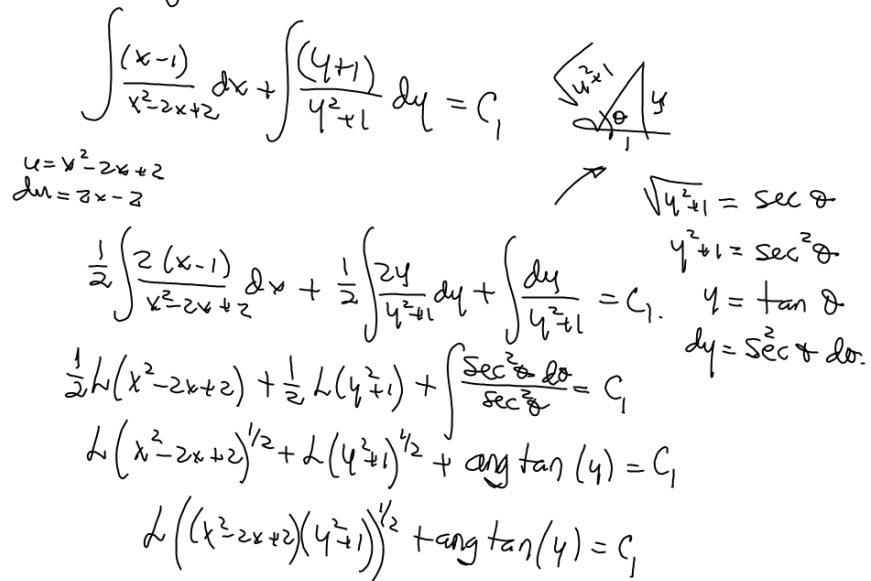 ∫ (x-1)/(x²-2x+2) dx + ∫ (y+1)/(y²+1) dy = C₁
√(y²+1) θ y 1
u = x²-2x+2
du = 2x-2
√(y²+1) = sec θ
y²+1 = sec²θ
y = tan θ
dy = sec²θ dθ.
1/2 ∫ 2(x-1)/(x²-2x+2) dx + 1/2 ∫ 2y/(y²+1) dy + ∫ dy/(y²+1) = C₁.
1/2 L(x²-2x+2) + 1/2 L(y²+1) + ∫ sec²θ dθ/sec²θ = C₁
L(x²-2x+2)^1/2 + L(y²+1)^1/2 + ang tan (y) = C₁
L((x²-2x+2)(y²+1))^1/2 + ang tan(y) = C₁